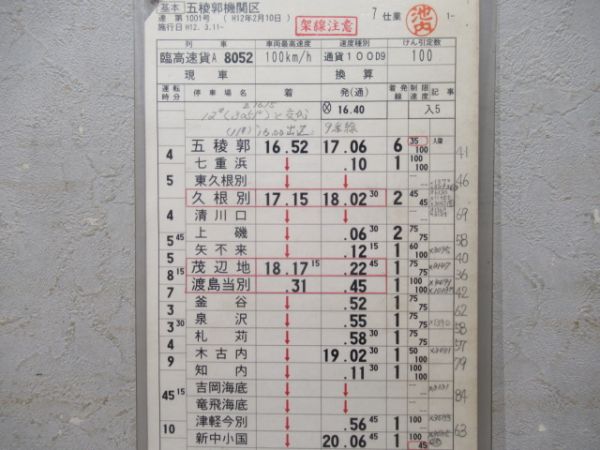 基本 五稜郭機関区
達 第1001号 (H12年2月10日)
施行日 H12.3.11~
架線注意
7 仕業
池内
1-
列車 車両最高速度 速度種別 けん引定数
臨高速貨A 8052 100km/h 通貨100D9 100
現車 換算
運転時分 停車場名 着 発(通) 着発線 制限速度 記事
⊗ 16.40 入5
五稜郭 16.52 17.06 6 35 100 41
4
七重浜 ↓ .10 1 100 100
5 46
東久根別 ↓ ↓
久根別 17.15 18.02 30 2 45 45
4 69
清川口 ↓ ↓
上磯 ↓ .06 30 2 75 75
5 45 58
矢不来 ↓ .12 15 1 60 100
5 40
茂辺地 18.17 15 .22 45 1 75 75
8 15 36
渡島当別 .31 .45 1 100 100
7 42
釜谷 ↓ .52 1 100
3
泉沢 ↓ .55 1 75 75
3 30 58
札苅 ↓ .58 30 1 100
4 57
木古内 ↓ 19.02 30 1 50 100
9 79
知内 ↓ .11 30 1 100
吉岡海底 ↓ ↓
45 15 84
竜飛海底 ↓ ↓
津軽今別 ↓ .56 45 1 100
10 63
新中小国 ↓ 20.06 45 1 100 45